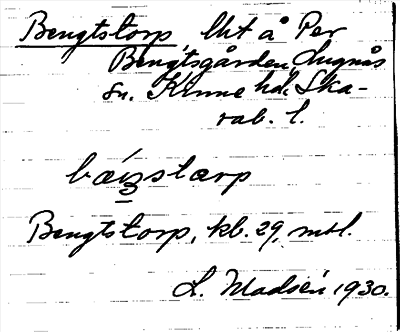 Bengtstorp, lht å Per
Bengtsgården, Lugnås
sn. Kinne hd. Ska-
rab. l.
bæŋstærp
Bengtstorp, kb. 29, mtl.
L. Madsén 1930.